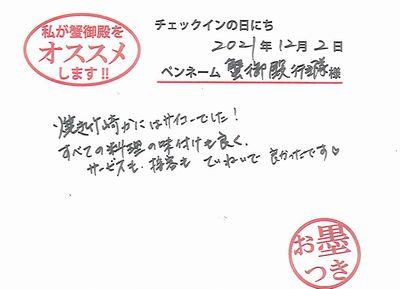 私が蟹御殿を
オススメ
します!!
チェックインの日にち
2021年12月2日
ペンネーム 蟹御殿行き隊様
焼き竹崎かにはサイコーでした!
すべての料理の味付けも良く、
サービスも、接客も ていねいで 良かったです♡
お墨
つき